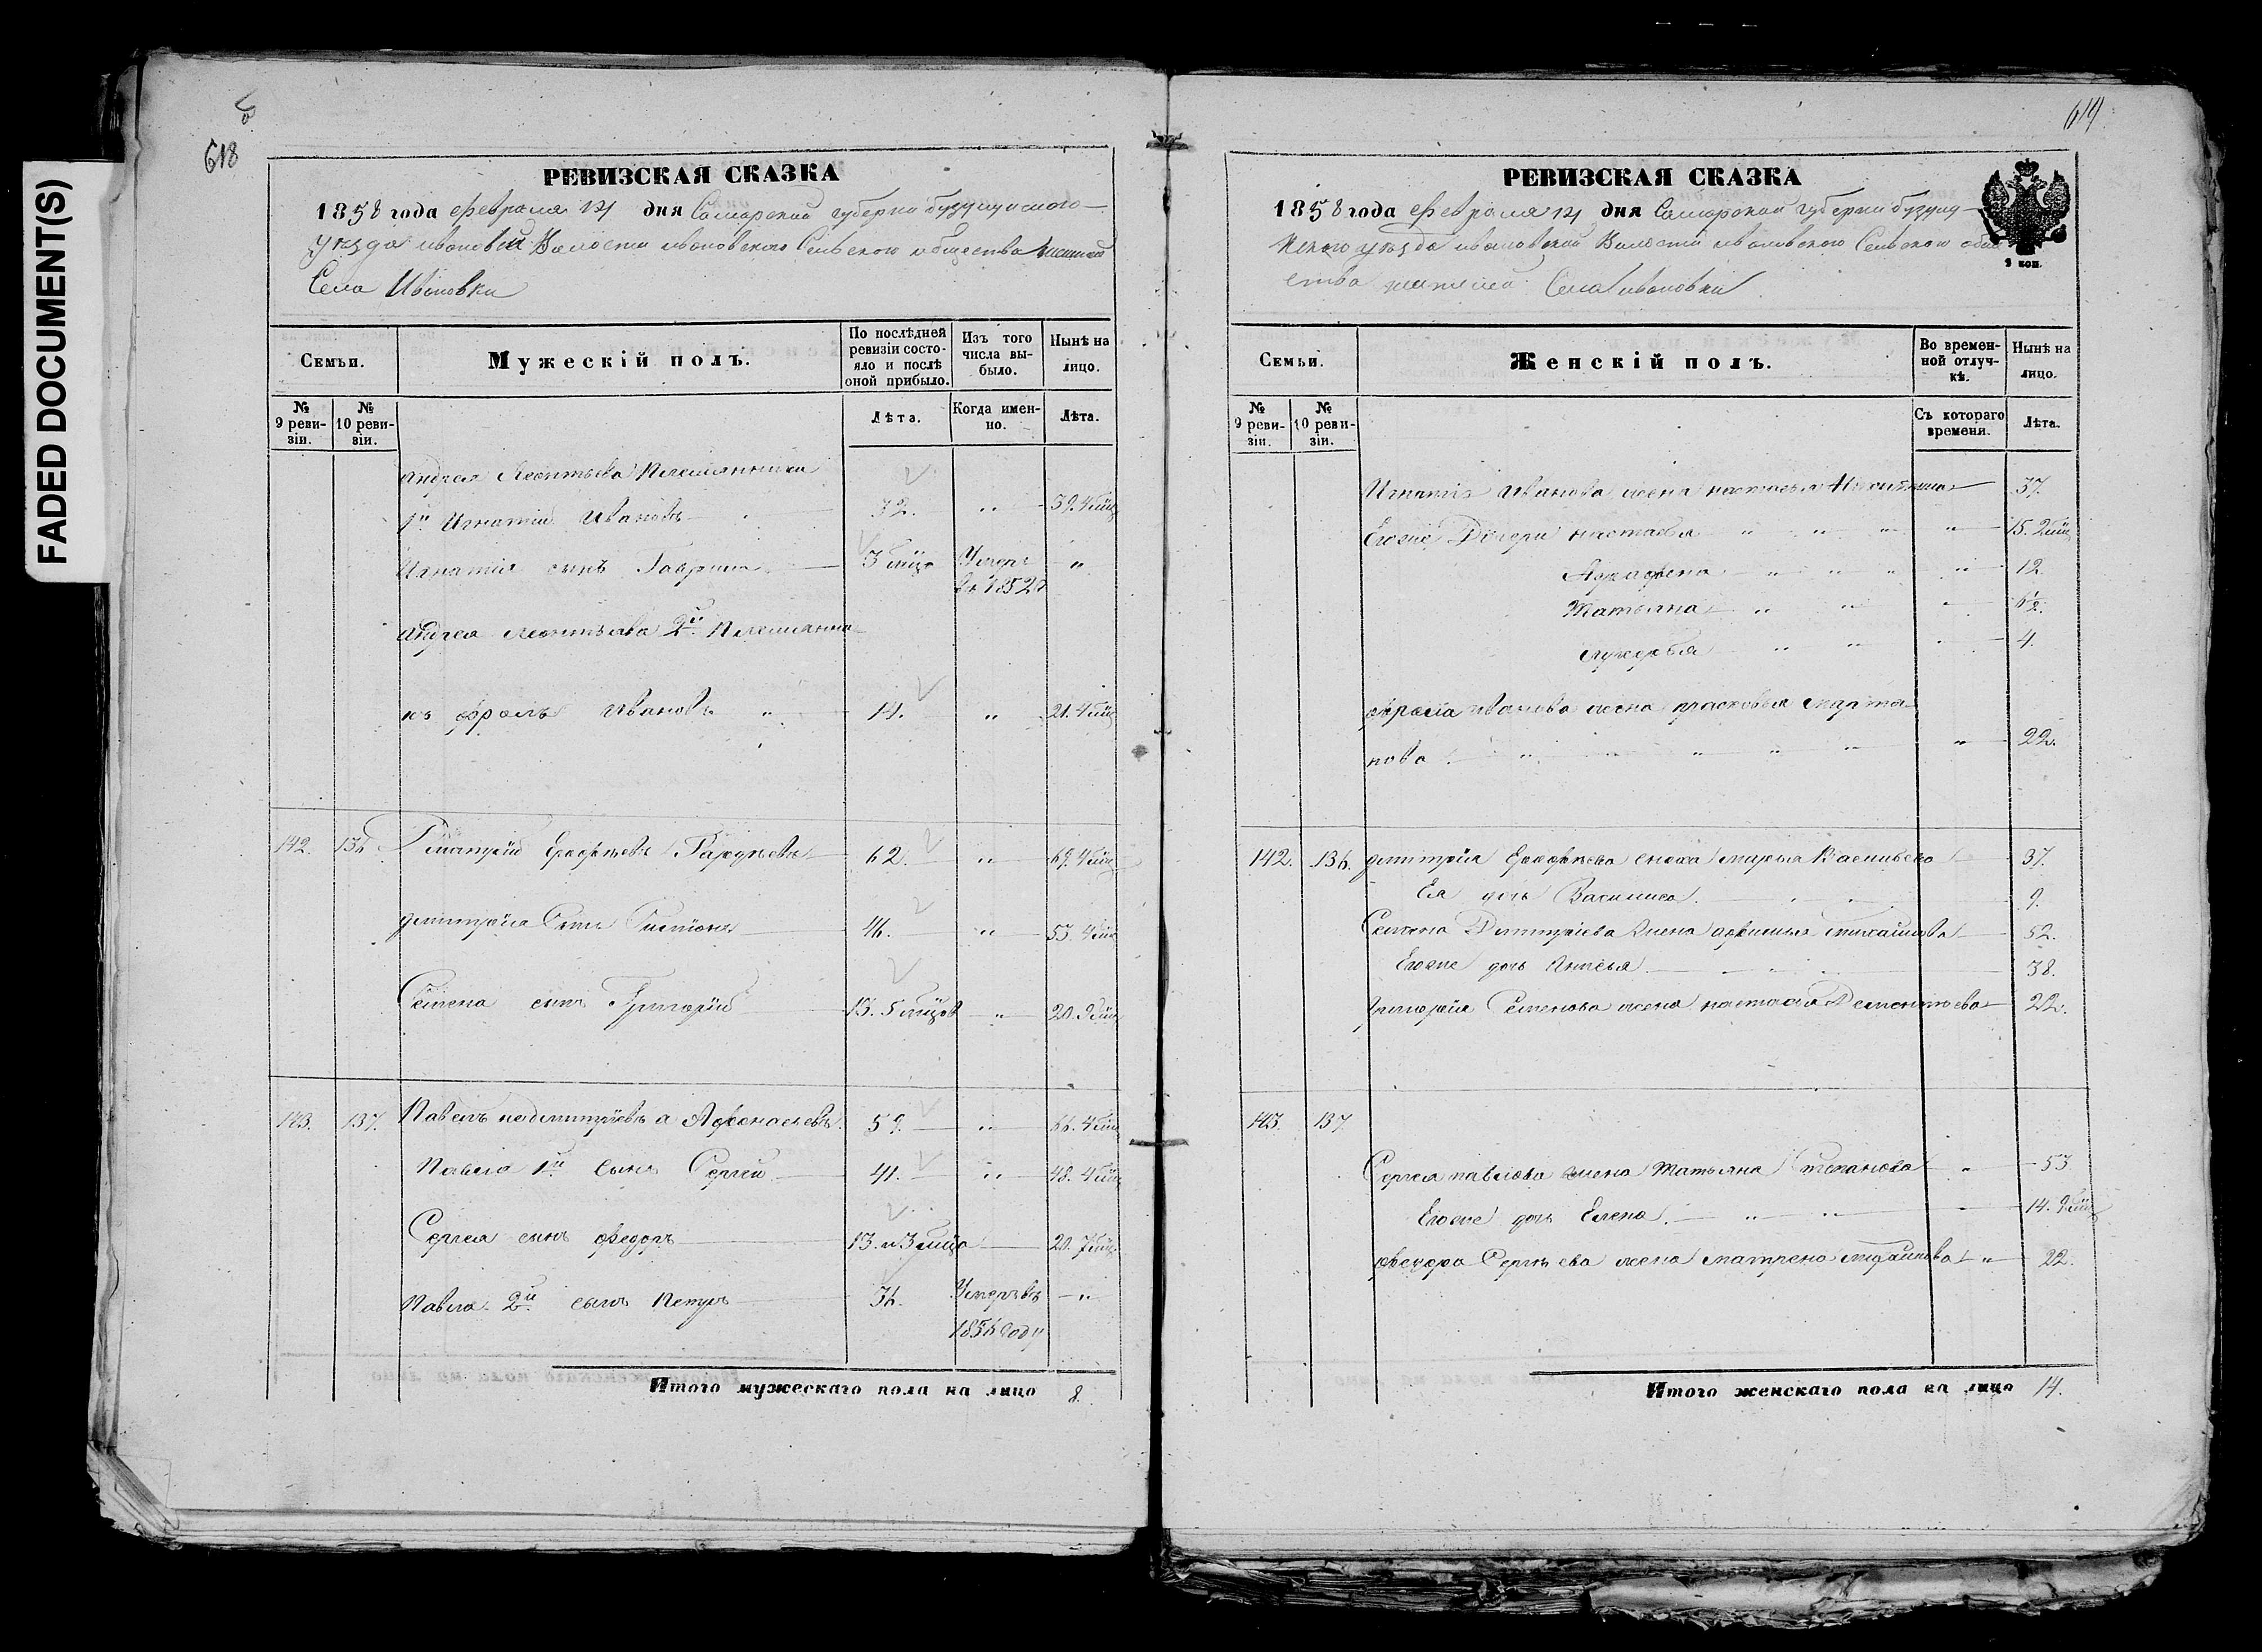 FADED DOCUMENT(S)
618
РЕВИЗСКАЯ СКАЗКА
1858 года февраля дня Самарской губерни бузулукского
уезда ивановской Волости ивановского Сельского общества
Села Ивановки
Семьи.
Мужескій полъ.
По послѣдней ревизіи состояло и послѣ оной прибыло.
Изъ того числа выбыло.
Нынѣ на лицо.
№ 9 ревизіи.
№ 10 ревизіи.
Лѣта.
Когда именно.
Лѣта.
Андрея Леонтьева Племянники
1й Игнатий Ивановъ 32. " 39. 4 мѣц
Игнатия сынъ Гаврила 3 мѣца Умеръ "
въ 1852
Андрея леонтьева 2й племянни
къ фролъ Ивановъ " 14. " 21. 4 мѣц
142. 136. Дмитрий Ерофѣевъ 62. " 69. 4 мѣц
дмитрия Сынъ Симионъ 46. " 53. 4 мѣц
Семена сынъ Григорий 13. 5 мѣцов " 20. 9 мѣц
143. 137. Павелъ недмитриевъ а Афонасьевъ 59. " 66. 4 мѣц
Павла 1й сынъ Сергей 41. " 48. 4 мѣц
Сергея сынъ федоръ 13. и 3 мѣца 20. 7 мѣц
Павла 2й сынъ Петръ 36. Умеръ въ "
1856 году
Итого мужескаго пола на лицо 8.
619
РЕВИЗСКАЯ СКАЗКА
1858 года февраля дня Самарской губерни бузулу
кского уезда ивановской Волости ивановского Сельского обще
ства жителей Села ивановки
2 коп.
Семьи.
Женскій полъ.
Во временной отлучкѣ.
Нынѣ на лицо.
№ 9 ревизіи.
№ 10 ревизіи.
Съ котораго времени.
Лѣта.
Игнатия Иванова жена настасья 37.
Егоже Дочери настасья " " " " 15. 2 мѣц
Аграфена " " " " 12.
Татьяна " " " 6½.
лукерья " " " 4.
фрола иванова жена прасковья
нова " " " " " " 22.
142. 136. дмитрия Ерофѣева сноха марья Васильева 37.
Ея дочь Василиса 9.
Семена Дмитриева жена михайлова 52.
Егоже дочь 38.
григория Семенова жена настасья Дементьева 22.
143. 137.
Сергея павлова жена татьяна степанова " 53
Егоже дочь Елена " " 14. 9 мѣц
федора Сергѣева жена матрена " 22.
Итого женскаго пола на лицо 14.